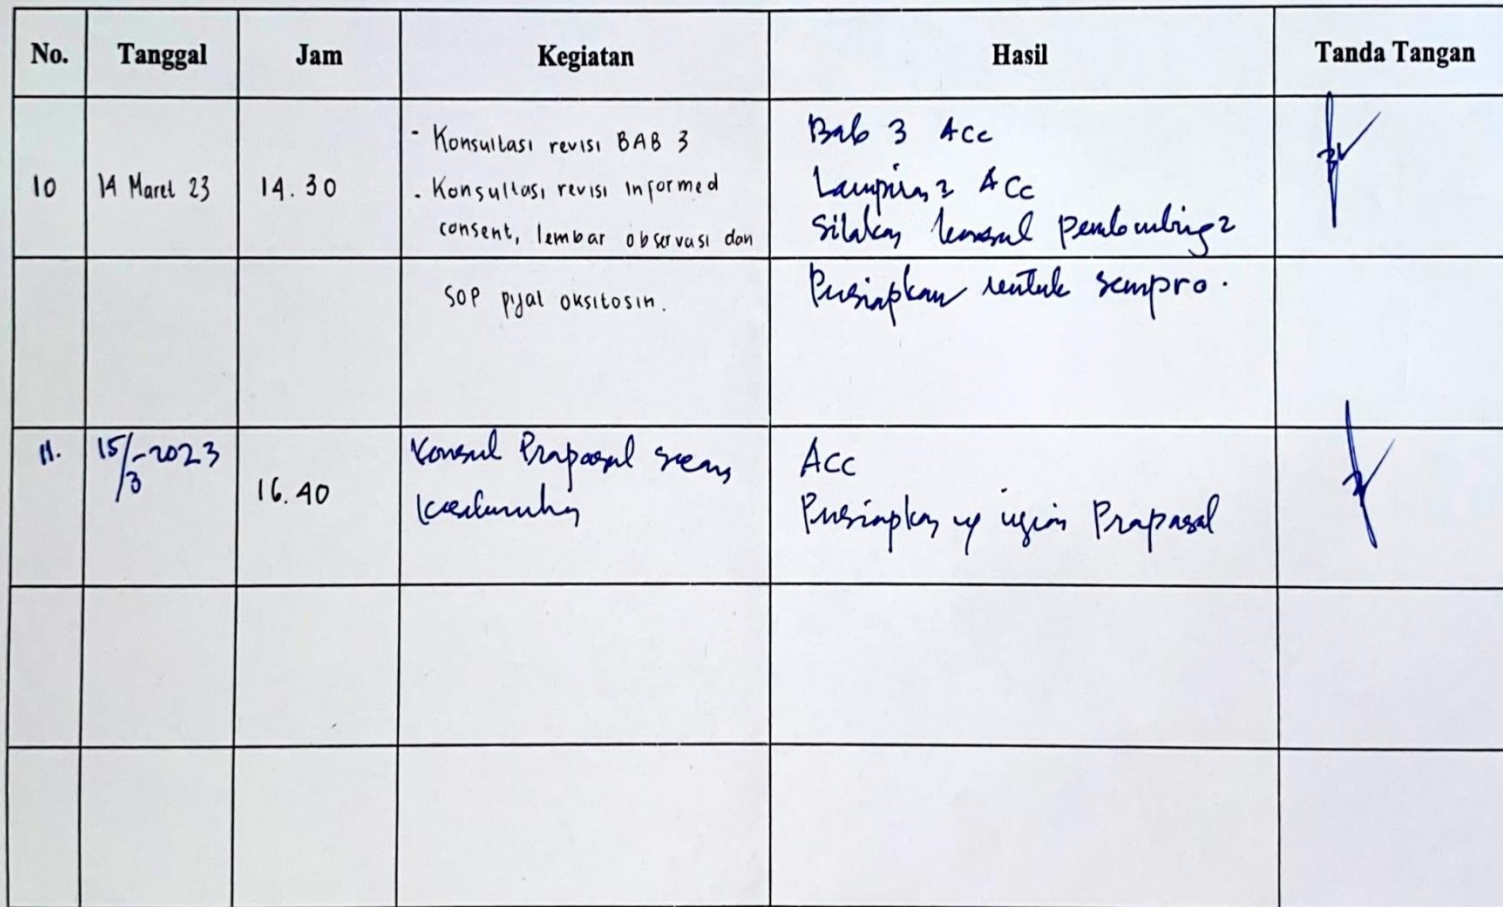 No. Tanggal Jam Kegiatan Hasil Tanda Tangan
10 14 Maret 23 14.30
- Konsultasi revisi BAB 3
- Konsultasi revisi Informed
consent, lembar observasi dan
SOP pijat oksitosin.
Bab 3 Acc
Lampiran2 Acc
Silakan konsul pembimbing 2
Persiapkan untuk sempro.
11. 15/3-2023 16.40
Konsul Proposal secara
keseluruhan
Acc
Persiapkan ujian Proposal